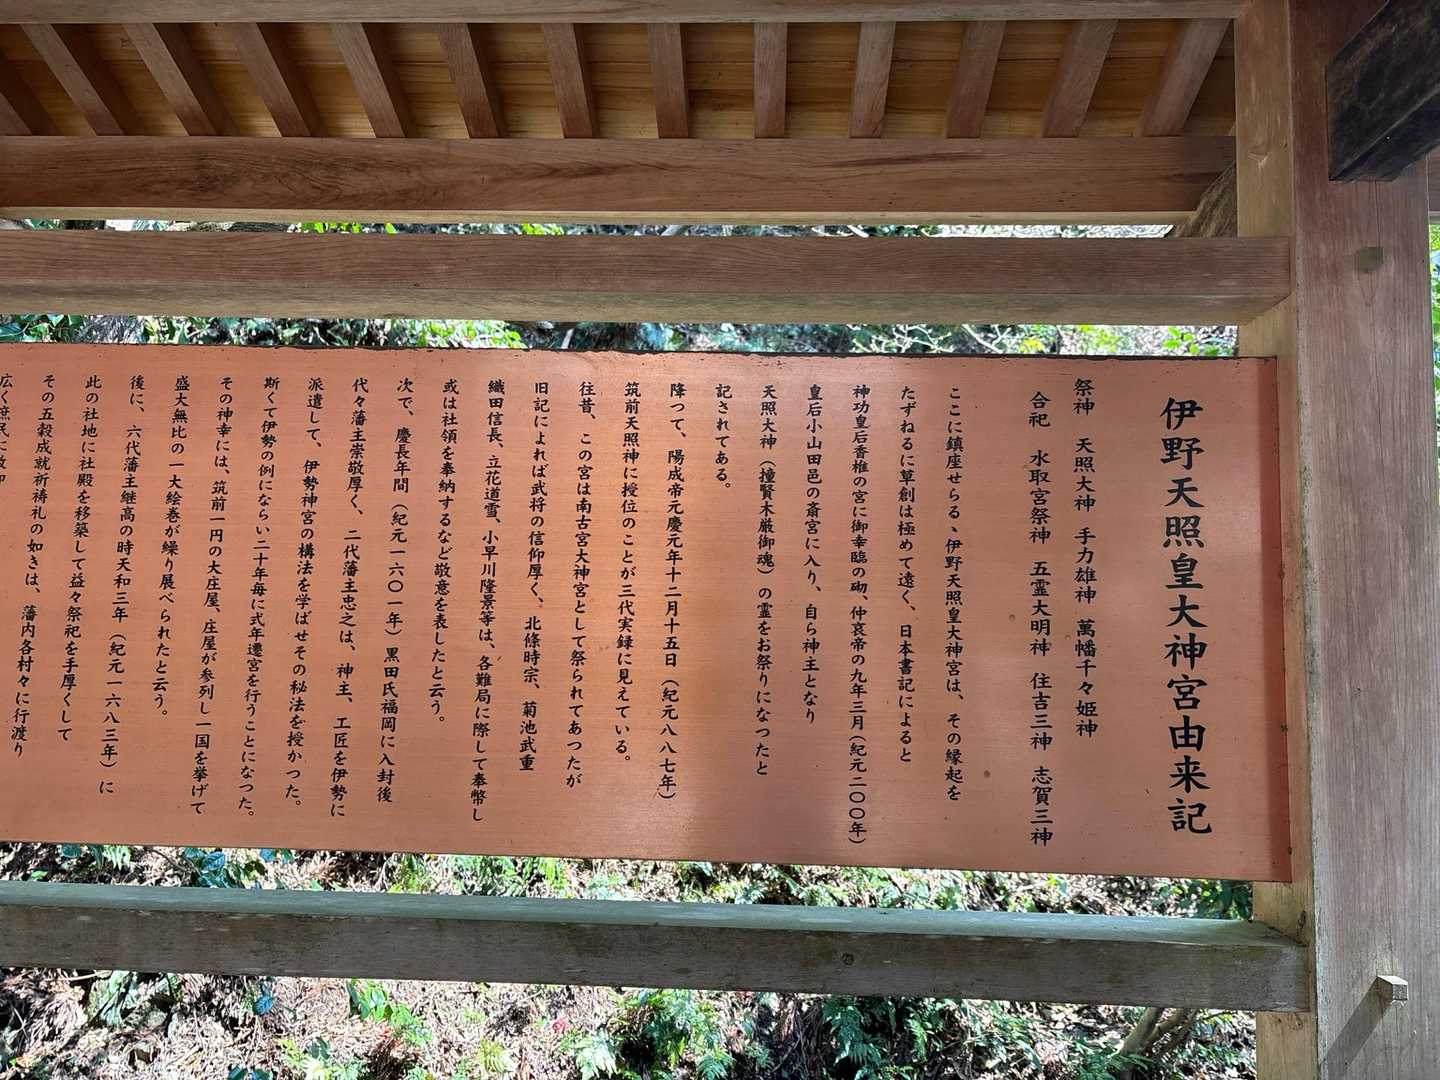 伊野天照皇大神宮由来記
祭神 天照大神 手力雄神 萬幡千々姫神
合祀 水取宮祭神 五霊大明神 住吉三神 志賀三神
ここに鎮座せらるゝ伊野天照皇大神宮は、その縁起を
たずねるに草創は極めて遠く、日本書記によると
神功皇后香椎の宮に御幸臨の砌、仲哀帝の九年三月(紀元二〇〇年)
皇后小山田邑の斎宮に入り、自ら神主となり
天照大神(撞賢木厳御魂)の霊をお祭りになつたと
記されてある。
降つて、陽成帝元慶元年十二月十五日(紀元八八七年)
筑前天照神に授位のことが三代実録に見えている。
往昔、この宮は南古宮大神宮として祭られてあつたが
旧記によれば武将の信仰厚く、北條時宗、菊池武重
織田信長、立花道雪、小早川隆景等は、各難局に際して奉幣し
或は社領を奉納するなど敬意を表したと云う。
次で、慶長年間(紀元一六〇一年)黒田氏福岡に入封後
代々藩主崇敬厚く、二代藩主忠之は、神主、工匠を伊勢に
派遣して、伊勢神宮の構法を学ばせその秘法を授かつた。
斯くて伊勢の例にならい二十年毎に式年遷宮を行うことになつた。
その神幸には、筑前一円の大庄屋、庄屋が参列し一国を挙げて
盛大無比の一大絵巻が繰り展べられたと云う。
後に、六代藩主継高の時天和三年(紀元一六八三年)に
此の社地に社殿を移築して益々祭祀を手厚くして
その五穀成就祈祷礼の如きは、藩内各村々に行渡り
広く庶民に